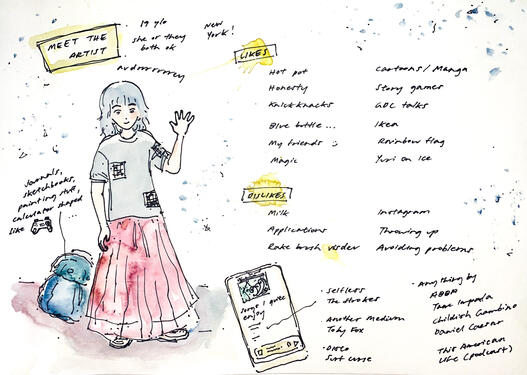 MEET THE
ARTIST
19 y/o
she or they
both ok
New
York!
LIKES
Hot pot
Honesty
Knickknacks
Blue bottle...
My friends :)
Magic
Cartoons/Manga
Story games
GDC talks
Ikea
Rainbow flag
Yuri on Ice
Journals,
sketchbooks,
painting stuff,
calculator shaped
like
DISLIKES
Milk
Applications
Rake brush
Instagram
Throwing up
Avoiding problems
songs I quite
enjoy
· Selfless
The Strokes
· Another Medium
Toby Fox
· Disco
Surf Curse
· Anything by
ABBA
Tame Impala
Childish Gambino
Daniel Caesar
This American
Life (podcast)